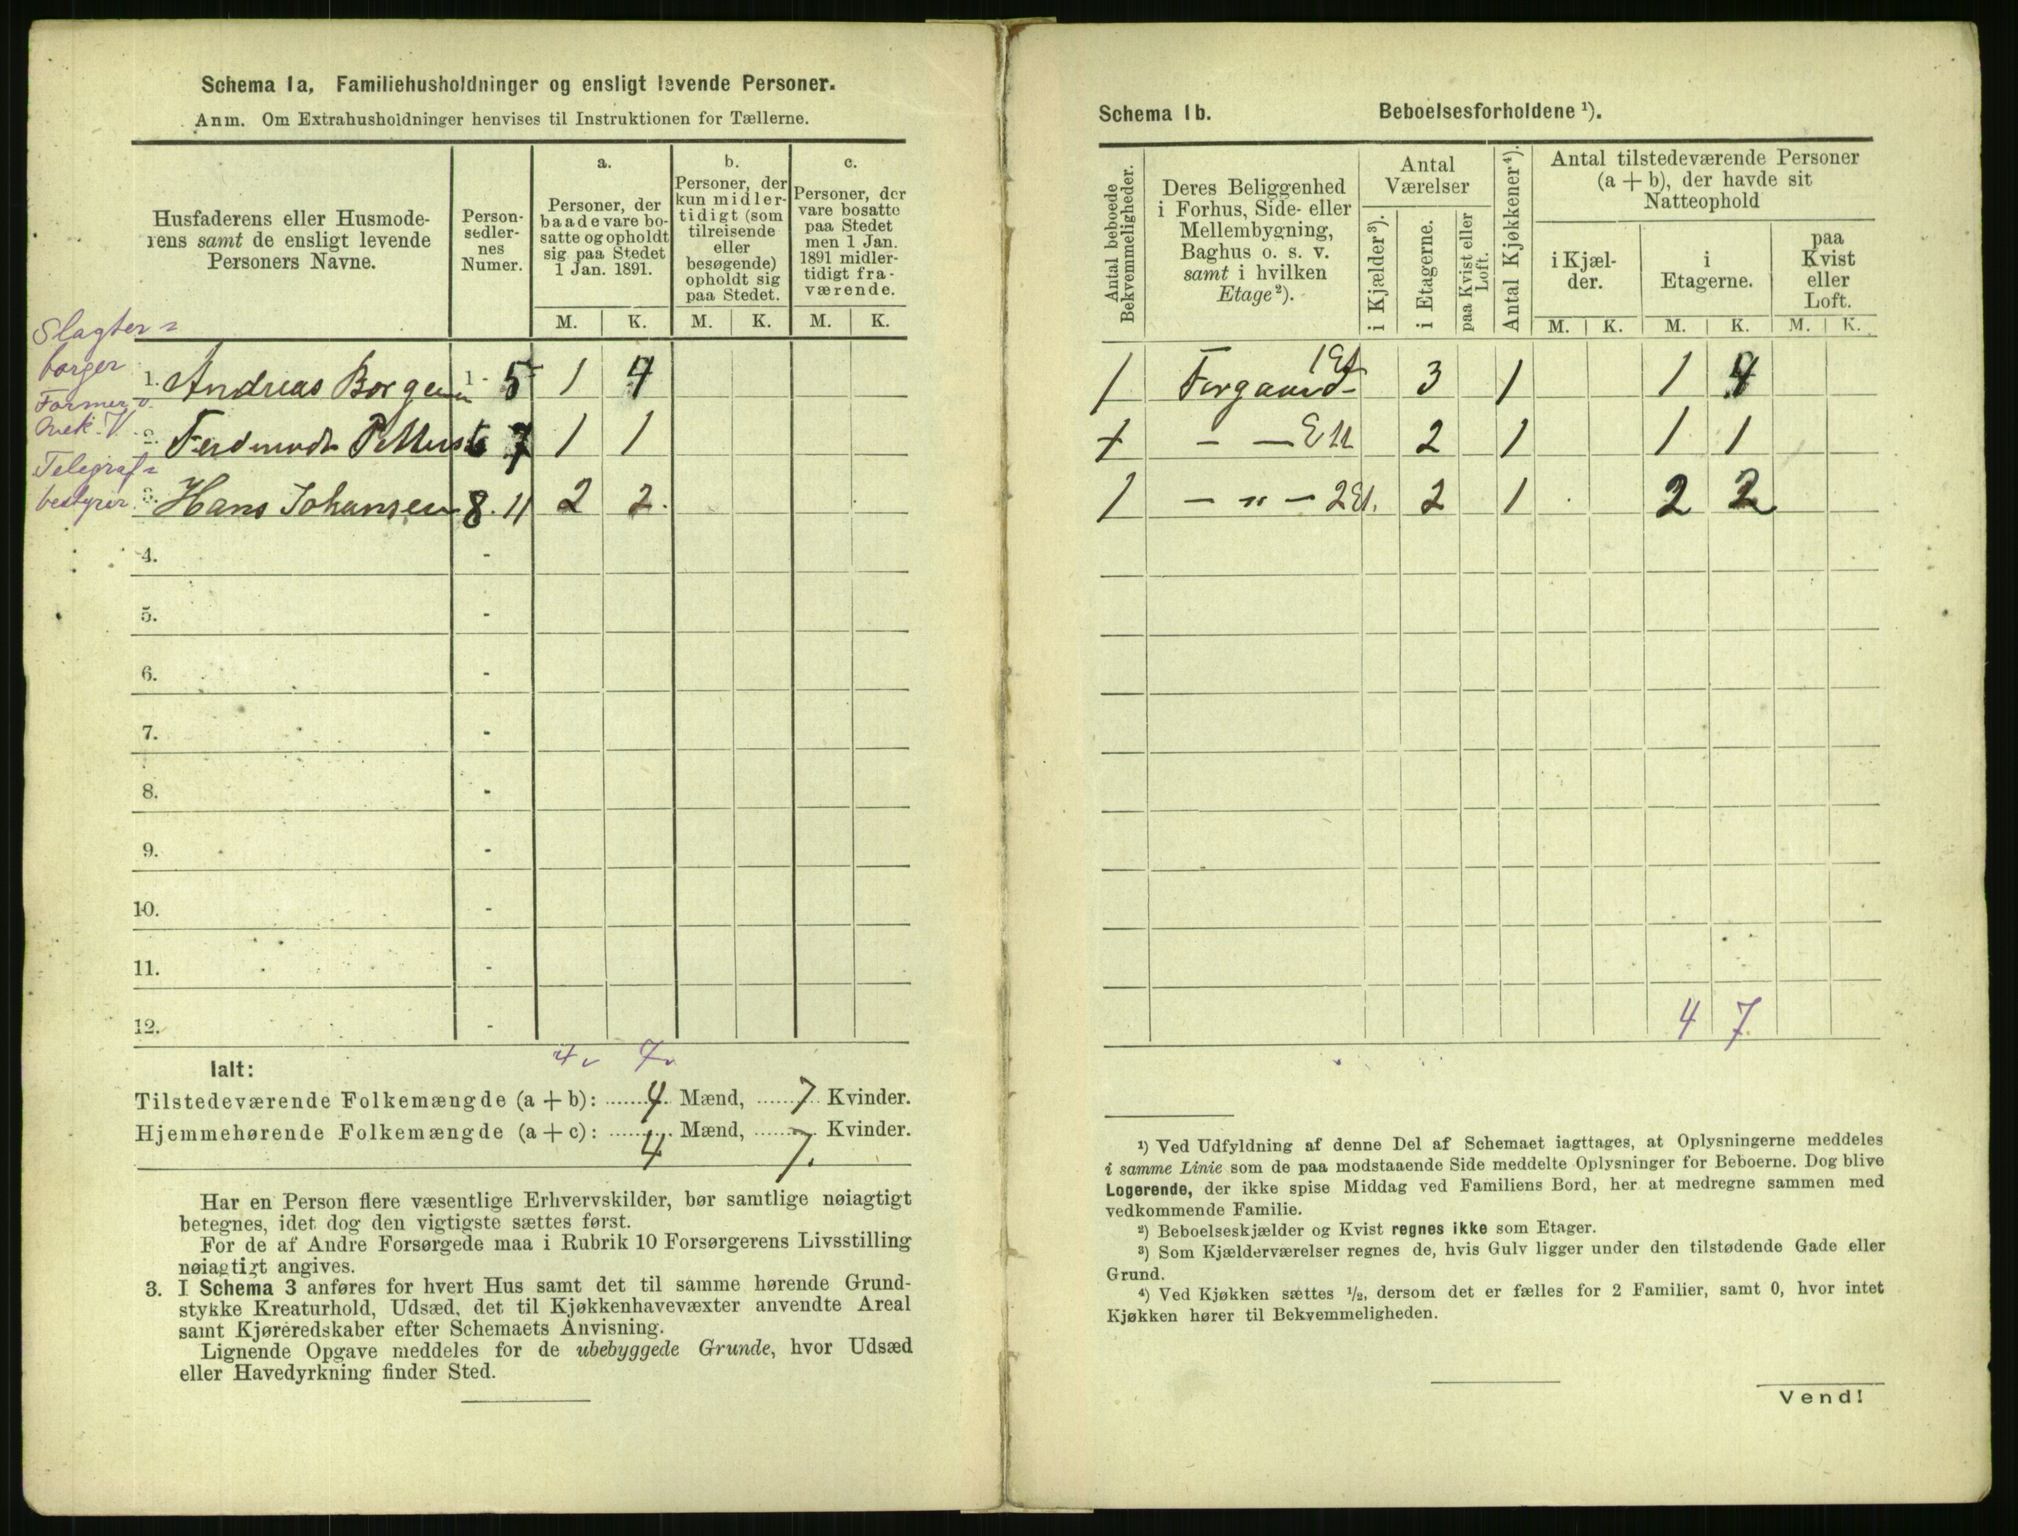 Schema 1a, Familiehusholdninger og ensligt levende Personer.
Anm. Om Extrahusholdninger henvises til Instruktionen for Tællerne.
Husfaderens eller Husmode-
rens samt de ensligt levende
Personers Navne.
Person-
sedler-
nes
Numer.
a.
Personer, der
baade vare bo-
satte og opholdt
sig paa Stedet
1 Jan. 1891.
b.
Personer, der
kun midler-
tidigt (som
tilreisende
eller
besøgende)
opholdt sig
paa Stedet.
c.
Personer, der
vare bosatte
paa Stedet
men 1 Jan.
1891 midler-
tidigt fra-
værende.
M. K. M. K. M. K.
Slagter-
borger
1. Andreas Borgen 1 - 5 1 4
Former v.
mek. V.
2. 6 7 1 1
Telegraf-
bestyrer
3. Hans Johansen 8 - 11 2 2
4. -
5. -
6. -
7. -
8. -
9. -
10. -
11. -
12. -
4 7
Ialt:
Tilstedeværende Folkemængde (a + b): 4 Mænd, 7 Kvinder.
Hjemmehørende Folkemængde (a + c): 4 Mænd, 7 Kvinder.
Har en Person flere væsentlige Erhvervskilder, bør samtlige nøiagtigt
betegnes, idet dog den vigtigste sættes først.
For de af Andre Forsørgede maa i Rubrik 10 Forsørgerens Livsstilling
nøiagtigt angives.
3. I Schema 3 anføres for hvert Hus samt det til samme hørende Grund-
stykke Kreaturhold, Udsæd, det til Kjøkkenhavevæxter anvendte Areal
samt Kjøreredskaber efter Schemaets Anvisning.
Lignende Opgave meddeles for de ubebyggede Grunde, hvor Udsæd
eller Havedyrkning finder Sted.
Schema 1b. Beboelsesforholdene ¹).
Antal beboede
Bekvemmeligheder.
Deres Beliggenhed
i Forhus, Side- eller
Mellembygning,
Baghus o. s. v.
samt i hvilken
Etage²).
Antal
Værelser
i Kjælder³).
i Etagerne.
paa Kvist eller
Loft.
Antal Kjøkkener⁴).
Antal tilstedeværende Personer
(a + b), der havde sit
Natteophold
i Kjæl-
der.
i
Etagerne.
paa
Kvist
eller
Loft.
M. K. M. K. M. K.
1 Forgaard 1 Et 3 1 1 4
1 - — 2 1 1 1
1 — „ — 2 Et. 2 1 2 2
4 7
¹) Ved Udfyldning af denne Del af Schemaet iagttages, at Oplysningerne meddeles
i samme Linie som de paa modstaaende Side meddelte Oplysninger for Beboerne. Dog blive
Logerende, der ikke spise Middag ved Familiens Bord, her at medregne sammen med
vedkommende Familie.
²) Beboelseskjælder og Kvist regnes ikke som Etager.
³) Som Kjælderværelser regnes de, hvis Gulv ligger under den tilstødende Gade eller
Grund.
⁴) Ved Kjøkken sættes ½, dersom det er fælles for 2 Familier, samt 0, hvor intet
Kjøkken hører til Bekvemmeligheden.
Vend!